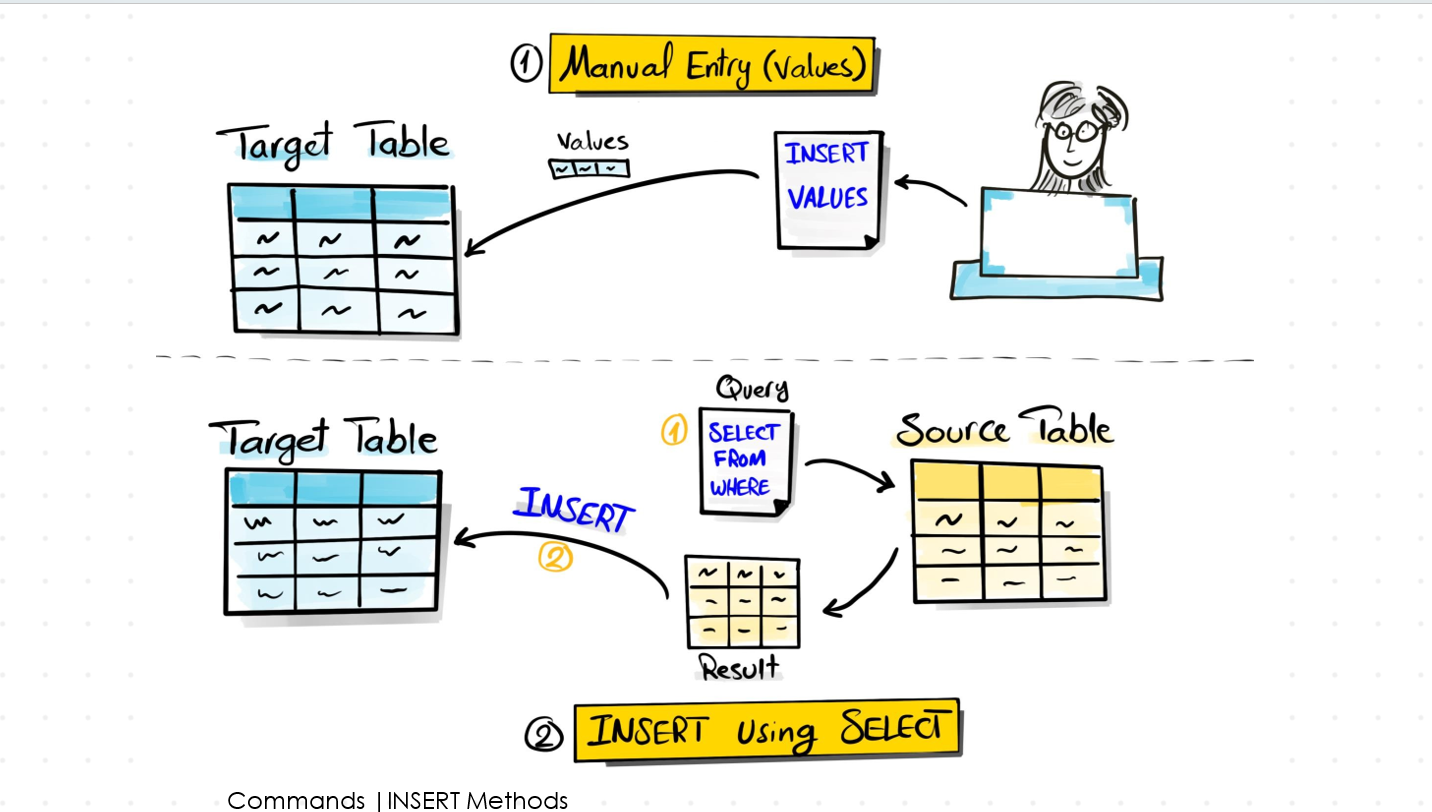 ① Manual Entry (Values)
Target Table
Values
INSERT
VALUES
Query
Target Table
①
SELECT
FROM
WHERE
Source Table
INSERT
②
Result
② INSERT Using SELECT
Commands | INSERT Methods